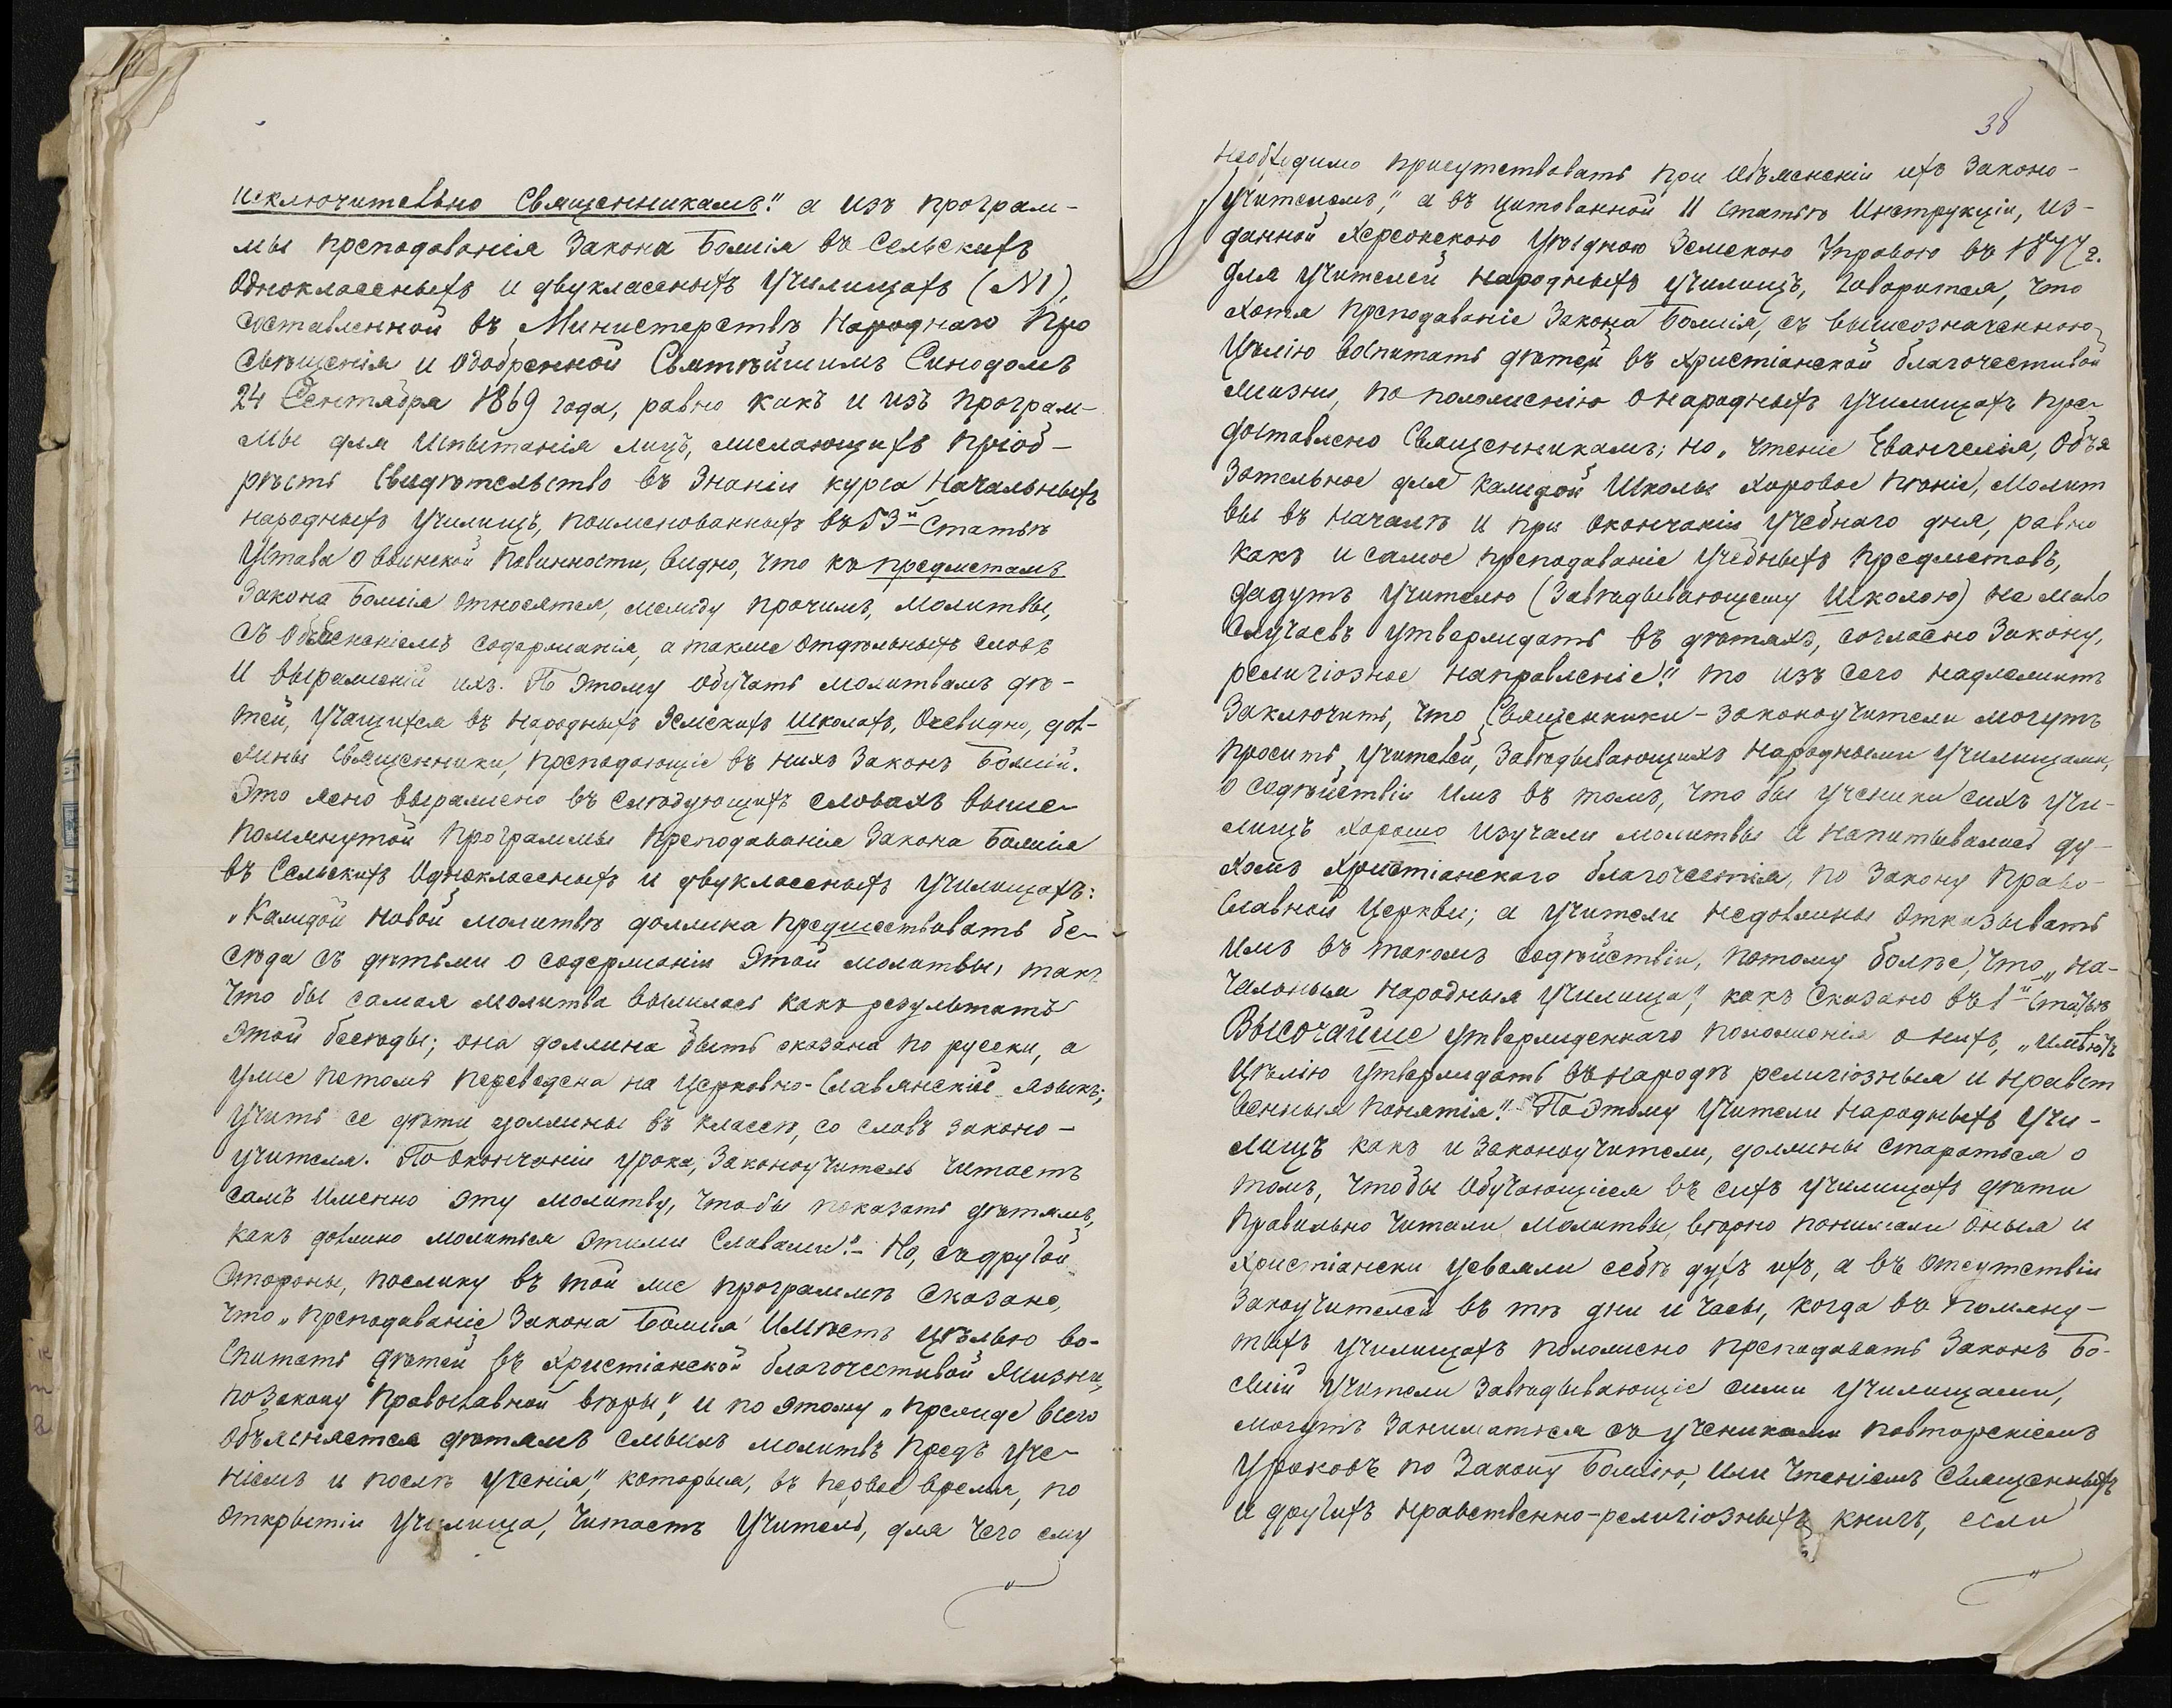 исключительно Священникамъ." а изъ програм-
мы преподаванія Закона Божія въ Сельскихъ
Одноклассныхъ и двуклассныхъ Училищахъ (№1),
составленной въ Министерствѣ Народнаго Про
свѣщенія и одобренной Святѣйшимъ Синодомъ
24 Сентября 1869 года, равно какъ и изъ програм-
мы для испытанія лицъ, желающихъ пріоб-
рѣсть Свидѣтельство въ Знаніи курса Начальныхъ
народныхъ Училищъ, поименованныхъ въ 53й Статьѣ
Устава о воинской Повинности, видно, что къ предметамъ
Закона Божія относятся, между прочимъ, молитвы,
съ объясненіемъ содержанія, а также отдѣльныхъ словъ
и выраженій ихъ. По этому обучать молитвамъ дѣ-
тей, учащихся въ Народныхъ Земскихъ Школахъ, Очевидно, дол-
жны Священники, преподающіе въ нихъ Законъ Божій.
Это ясно выражено въ слѣдующихъ словахъ выше-
помянутой Программы преподаванія Закона Божія
въ Сельскихъ Одноклассныхъ и двуклассныхъ Училищахъ:
„Каждой новой молитвѣ должна предшествовать бе-
сѣда съ дѣтьми о содержаніи этой молитвы, такъ
что бы самая молитва вышлась какъ результатъ
этой бесѣды; она должна быть сказана по русски, а
уже потомъ переведена на Церковно-Славянскій языкъ;
учить ее дѣти должны въ классѣ, со словъ законо-
учителя. По окончаніи урока, Законоучитель читаетъ
самъ именно эту молитву, чтобы показать дѣтямъ,
какъ должно молиться этими Словами."- Но, съ другой
Стороны, поелику въ той же программѣ сказано,
что „преподаваніе Закона Божія имѣетъ цѣлью во-
спитать дѣтей въ Христіанской благочестивой Жизни,
по Закону Православной вѣры", и по этому „прежде всего
объясняется дѣтямъ смыслъ молитвъ предъ уче-
ніемъ и послѣ ученія", которыя, въ первое время, по
открытіи Училища, Читаетъ Учитель, для чего ему
38
необходимо присутствовать при объясненіи ихъ Законо-
учителемъ," а въ цитованной 11 статьѣ Инструкціи, из-
данной Херсонскою Уѣздною Земскою Управою въ 1877 г.
для учителей народныхъ училищъ, говорится, что
хотя преподаваніе Закона Божія, съ вышеозначенною
Цѣлію воспитать дѣтей въ Христіанской благочестивой
жизни, по положенію о народныхъ училищахъ пре-
доставлено Священникамъ; но „чтеніе Евангелія, Обя
зательное для каждой Школы хоровое пѣніе, Молит
вы въ началѣ и при окончаніи учебнаго дня, равно
какъ и самое преподаваніе учебныхъ предметовъ,
дадутъ учителю (Завѣдывающему Школою) не мало
Случаевъ утверждать въ дѣтяхъ, согласно Закону,
религіозное направленіе." то изъ сего надлежитъ
Заключить, что Священники-законоучители могутъ
просить учителей, Завѣдывающихъ народными Училищами,
о содѣйствіи имъ въ томъ, что бы ученики сихъ учи-
лищъ хорошо изучали молитвы и напитывались ду-
хомъ Христіанскаго благочестія, по Закону Право-
Славной Церкви; а учители недолжны отказывать
имъ въ такомъ содѣйствіи, потому болѣе, что „на-
чальныя народныя Училища", какъ Сказано въ 1й Статьѣ
Высочайше утвержденнаго положенія о нихъ, „имѣютъ
Цѣлію Утверждать въ народѣ религіозныя и нравст
венныя понятія." Поэтому Учители Народныхъ Учи-
лищъ какъ и Законоучители, должны стараться о
томъ, чтобы обучающіеся въ сихъ училищахъ дѣти
правильно читали молитвы, вѣрно понимали оныя и
христіански усвояли себѣ духъ ихъ, а въ отсутствіи
Закоучителей въ тѣ дни и часы, когда въ помяну-
тыхъ училищахъ положено преподавать Законъ Бо-
жій Учители Завѣдывающіе сими училищами,
могутъ заниматься съ учениками повтореніемъ
уроковъ по Закону Божію, или чтеніемъ Священныхъ
и другихъ нравственно-религіозныхъ книгъ, если